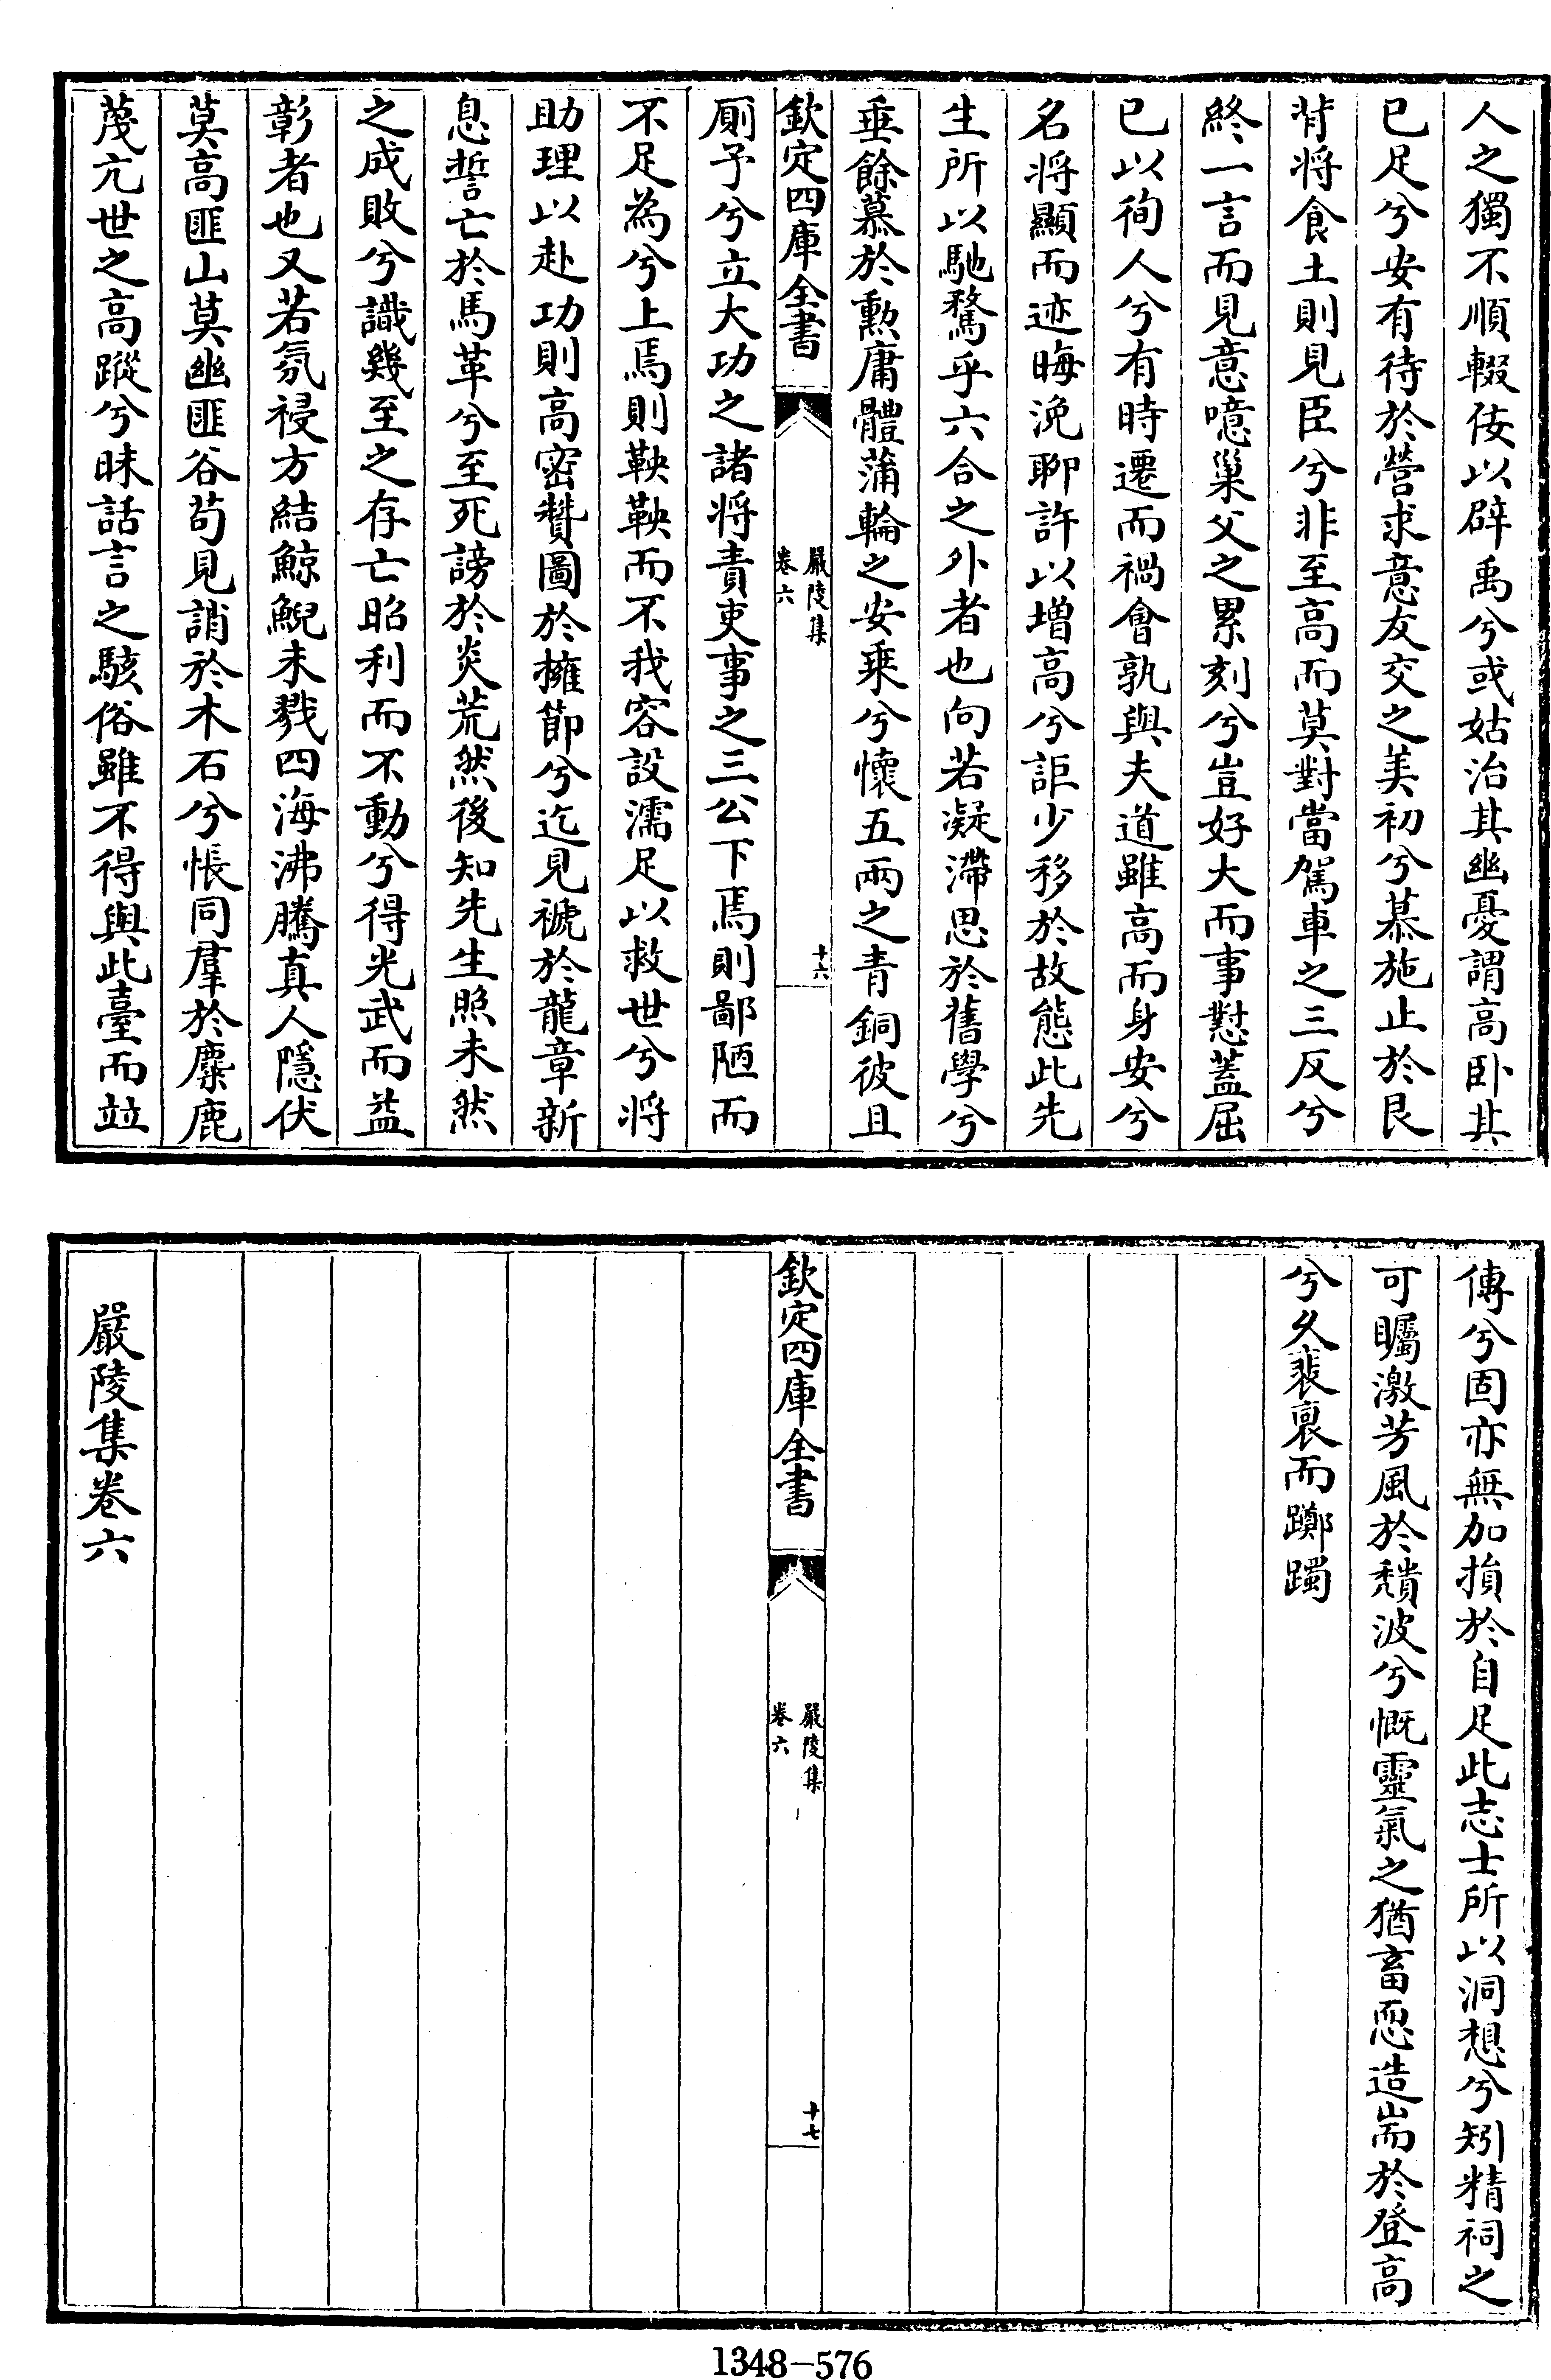 人之獨不順輟佞以辟禹兮或姑治其幽憂謂高卧其
已足兮安有待於營求意友交之美初兮慕施止於艮
背将食土則見臣兮非至高而莫對當駕車之三反兮
終一言而見意噫巢父之累刻兮豈好大而事懟蓋屈
已以徇人兮有時遷而禍會孰與夫道雖高而身安兮
名将顯而迹晦浼聊許以增高兮詎少移於故態此先
生所以馳騖乎六合之外者也向若凝滯思於舊學兮
垂餘慕於勲庸體蒲輪之安乗兮懷五兩之青銅彼且
欽定四庫全書
嚴陵集
卷六
十六
厠予兮立大功之諸将責吏事之三公下焉則鄙陋而
不足為兮上焉則鞅鞅而不我容設濡足以救世兮将
助理以赴功則高密贊圖於擁節兮迄見褫於龍章新
息誓亡於馬革兮至死謗於炎荒然後知先生照未然
之成敗兮識幾至之存亡昭利而不動兮得光武而益
彰者也又若氛祲方結鯨鯢未戮四海沸騰真人隱伏
莫高匪山莫幽匪谷苟見誚於木石兮悵同羣於麋鹿
蔑亢世之高蹤兮昧話言之駭俗雖不得與此臺而竝
傳兮固亦無加損於自足此志士所以洞想兮矧精祠之
可矚激芳風於頽波兮慨靈氣之猶畜恧造耑於登高
兮久裴裒而躑躅
欽定四庫全書
嚴陵集
卷六
十七
嚴陵集卷六
1348-576